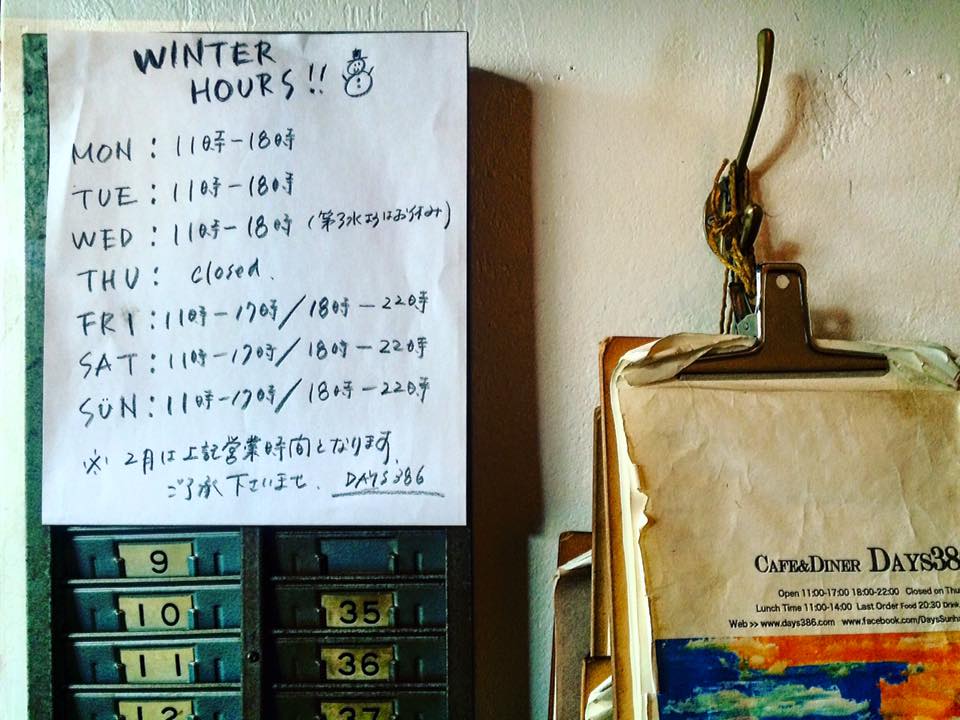 WINTER
HOURS!!
MON: 11時-18時
TUE: 11時-18時
WED: 11時-18時 (第3水曜はお休み)
THU: closed.
FRI: 11時-17時/18時-22時
SAT: 11時-17時/18時-22時
SUN: 11時-17時/18時-22時
※ 2月は上記営業時間となります。
ご了承下さいませ. DAYS386
9
10
11
12
35
36
37
CAFE&DINER DAYS38
Open 11:00-17:00 18:00-22:00 Closed on Thu
Lunch Time 11:00-14:00 Last Order Food 20:30 Drink
Web >> www.days386.com www.facebook.com/DaysSunha